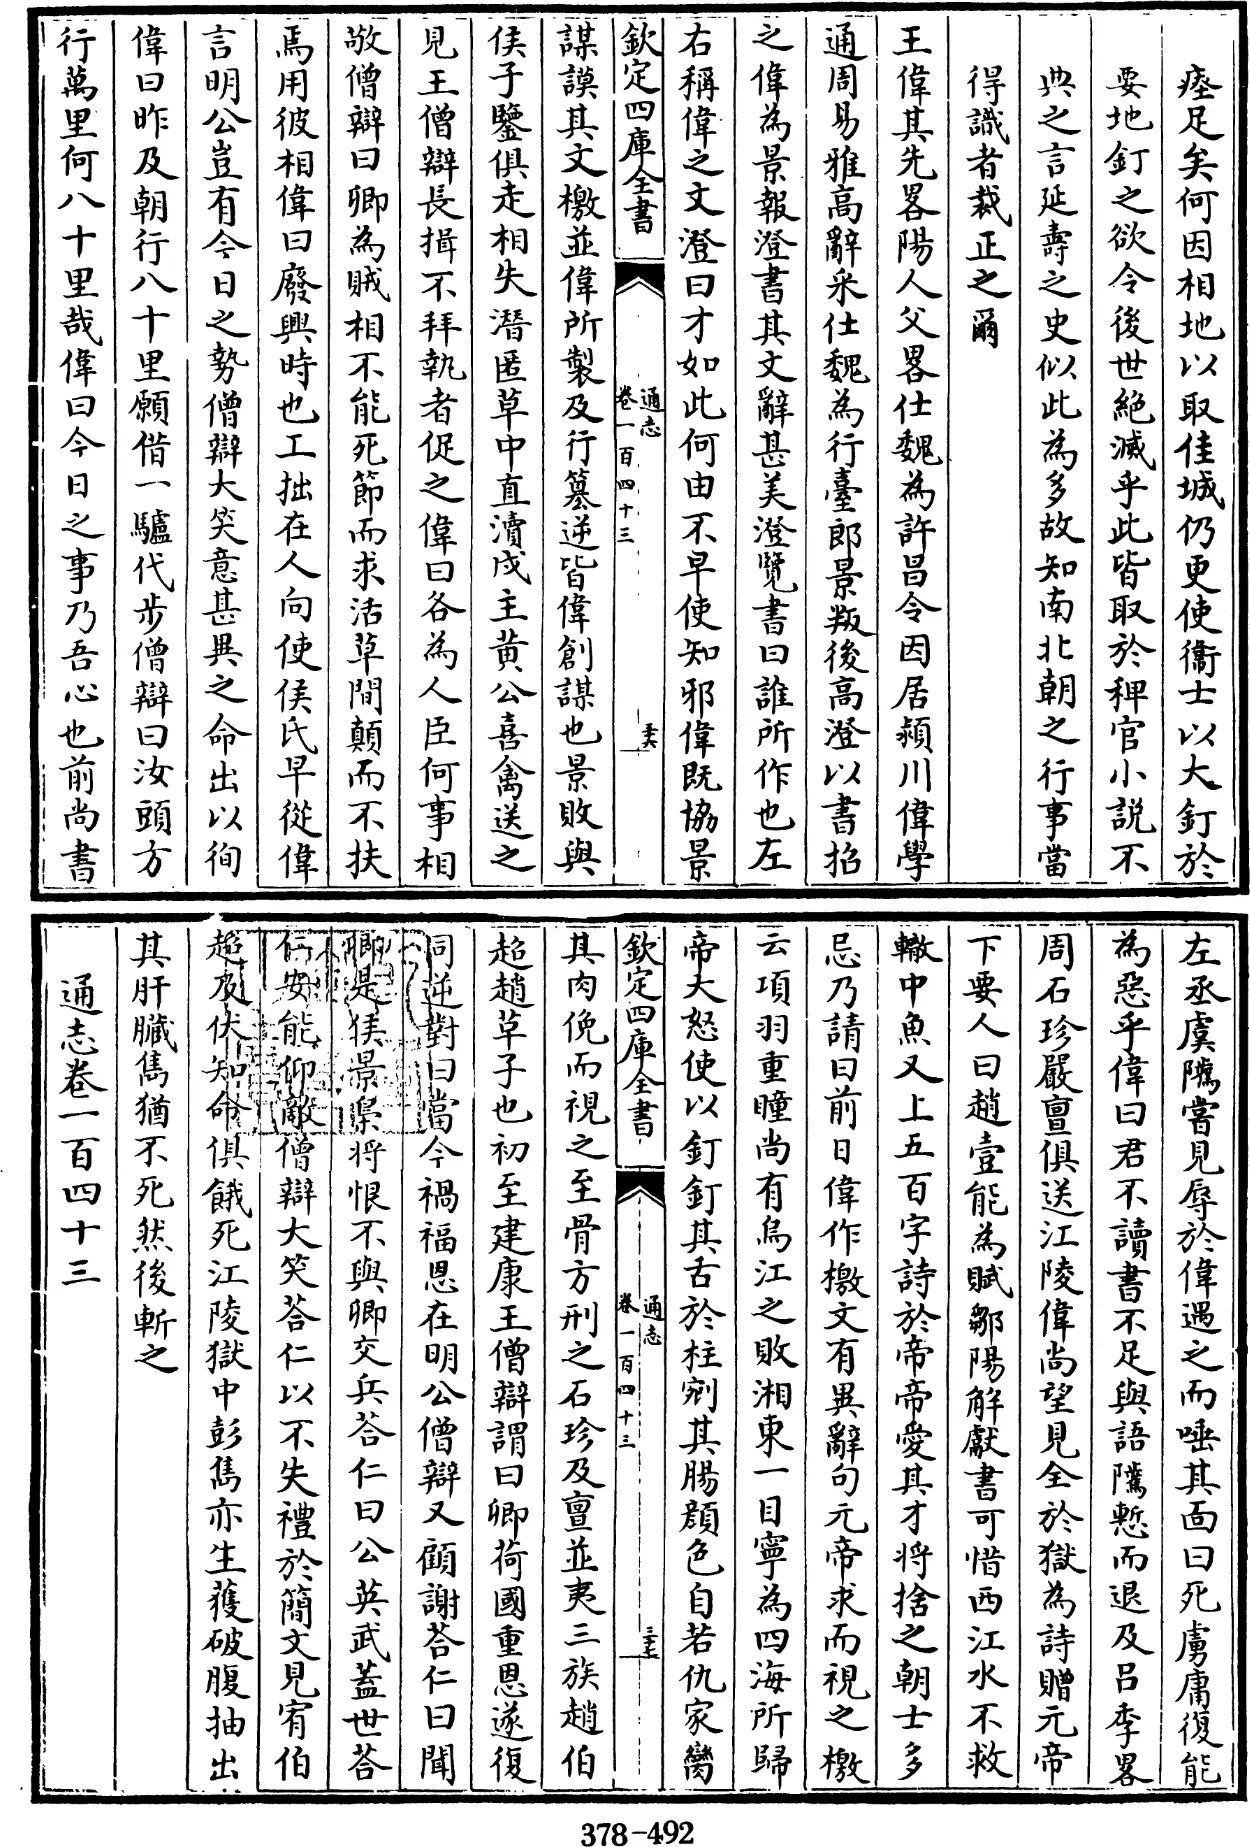 瘞足矣何因相地以取佳城仍更使衞士以大釘於
要地釘之欲令後世絶滅乎此皆取於稗官小説不
典之言延壽之史似此為多故知南北朝之行事當
得識者裁正之爾
王偉其先畧陽人父畧仕魏為許昌令因居潁川偉學
通周易雅高辭采仕魏為行臺郎景叛後高澄以書招
之偉為景報澄書其文辭甚美澄覽書曰誰所作也左
右稱偉之文澄曰才如此何由不早使知邪偉既協景
欽定四庫全書
通志
卷一百四十三
三十六
謀謨其文檄並偉所製及行簒逆皆偉創謀也景敗與
侯子鑒俱走相失潛匿草中直瀆戍主黄公喜禽送之
見王僧辯長揖不拜執者促之偉曰各為人臣何事相
敬僧辯曰卿為賊相不能死節而求活草間顛而不扶
焉用彼相偉曰廢興時也工拙在人向使侯氏早從偉
言明公豈有今日之勢僧辯大笑意甚異之命出以徇
偉曰昨及朝行八十里願借一驢代步僧辯曰汝頭方
行萬里何八十里哉偉曰今日之事乃吾心也前尚書
左丞虞隲嘗見辱於偉遇之而唾其面曰死虜庸復能
為惡乎偉曰君不讀書不足與語隲慙而退及吕季畧
周石珍嚴亶俱送江陵偉尚望見全於獄為詩贈元帝
下要人曰趙壹能為賦鄒陽解獻書可惜西江水不救
轍中魚又上五百字詩於帝帝愛其才將捨之朝士多
忌乃請曰前日偉作檄文有異辭句元帝求而視之檄
云項羽重瞳尚有烏江之敗湘東一目寧為四海所歸
帝大怒使以釘釘其舌於柱剜其腸顔色自若仇家臠
欽定四庫全書
通志
卷一百四十三
三十七
其肉俛而視之至骨方刑之石珍及亶並夷三族趙伯
超趙草子也初至建康王僧辯謂曰卿荷國重恩遂復
同逆對曰當今禍福恩在明公僧辯又顧謝荅仁曰聞
卿是侯景梟將恨不與卿交兵荅仁曰公英武蓋世荅
仁安能仰敵僧辯大笑荅仁以不失禮於簡文見宥伯
超及伏知命俱餓死江陵獄中彭雋亦生獲破腹抽出
其肝臟雋猶不死然後斬之
通志卷一百四十三
378-492